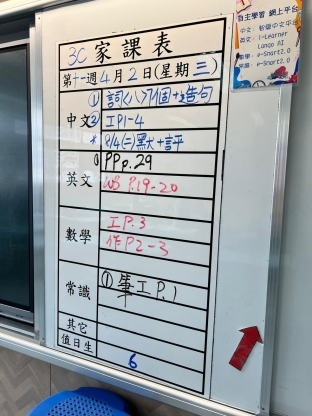 3C 家課表
第十一週4月2日(星期三)
中文
① 詞<八>11個+造句
② 工P1-4
* 8/4(二)黑大+評
英文
① PP p.29
WB P.19-20
數學
工P.3
作P2-3
常識
① 筆工P.1
其它
值日生
6
自主學習 網上平台
中文:
英文: i-Learner
Lango AI
數學: e-Smart2.0
常識: e-Smart2.0